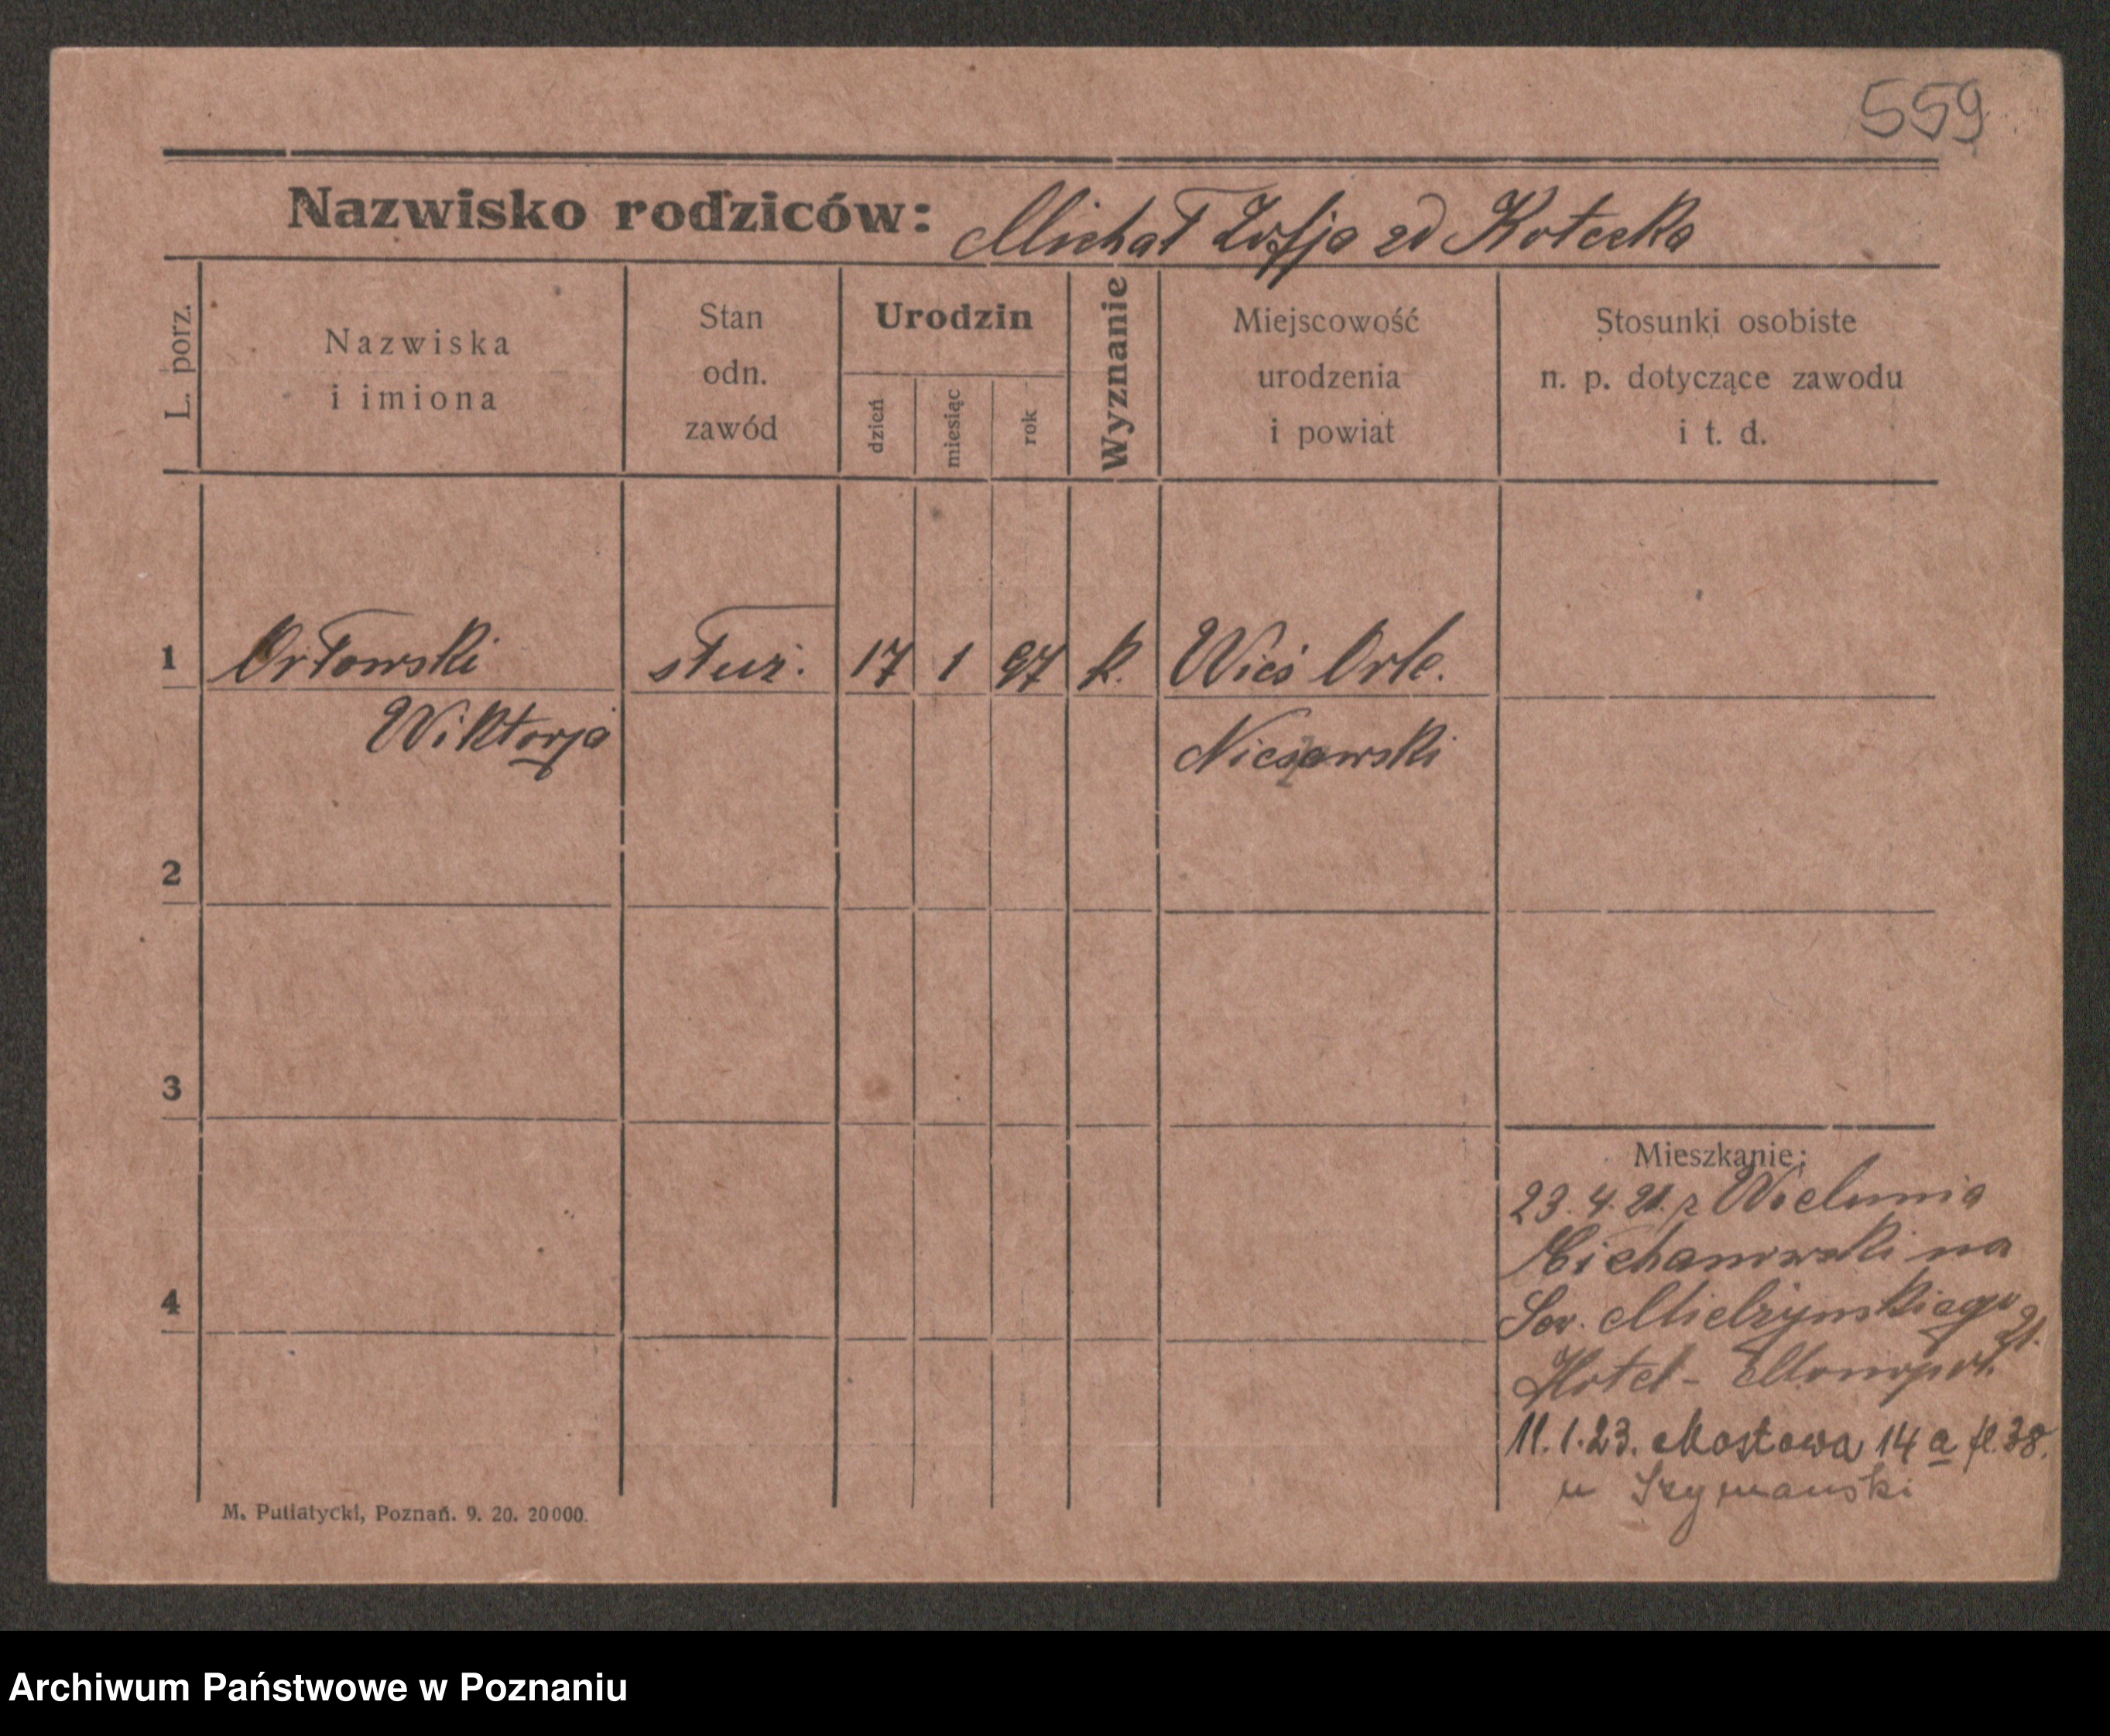 559
Nazwisko rodziców: Michał Zofja zd Kotecka
L. porz.
Nazwiska
i imiona
Stan
odn.
zawód
Urodzin
dzień
miesiąc
rok
Wyznanie
Miejscowość
urodzenia
i powiat
Stosunki osobiste
n. p. dotyczące zawodu
i t. d.
1 Orłowski służ. 17 1 97 k. Wieś Orle.
Wiktorja Nieszawski
2
3
Mieszkanie:
23. 4. 21. z Wielunia
Michanowski na
4
Sew. Mielżynskiego 21.
Hotel - Monopol.
11. 1. 23. Mostowa 14 a fl. 38.
u Szymanski
M. Putiatycki, Poznań. 9. 20. 20000.
Archiwum Państwowe w Poznaniu